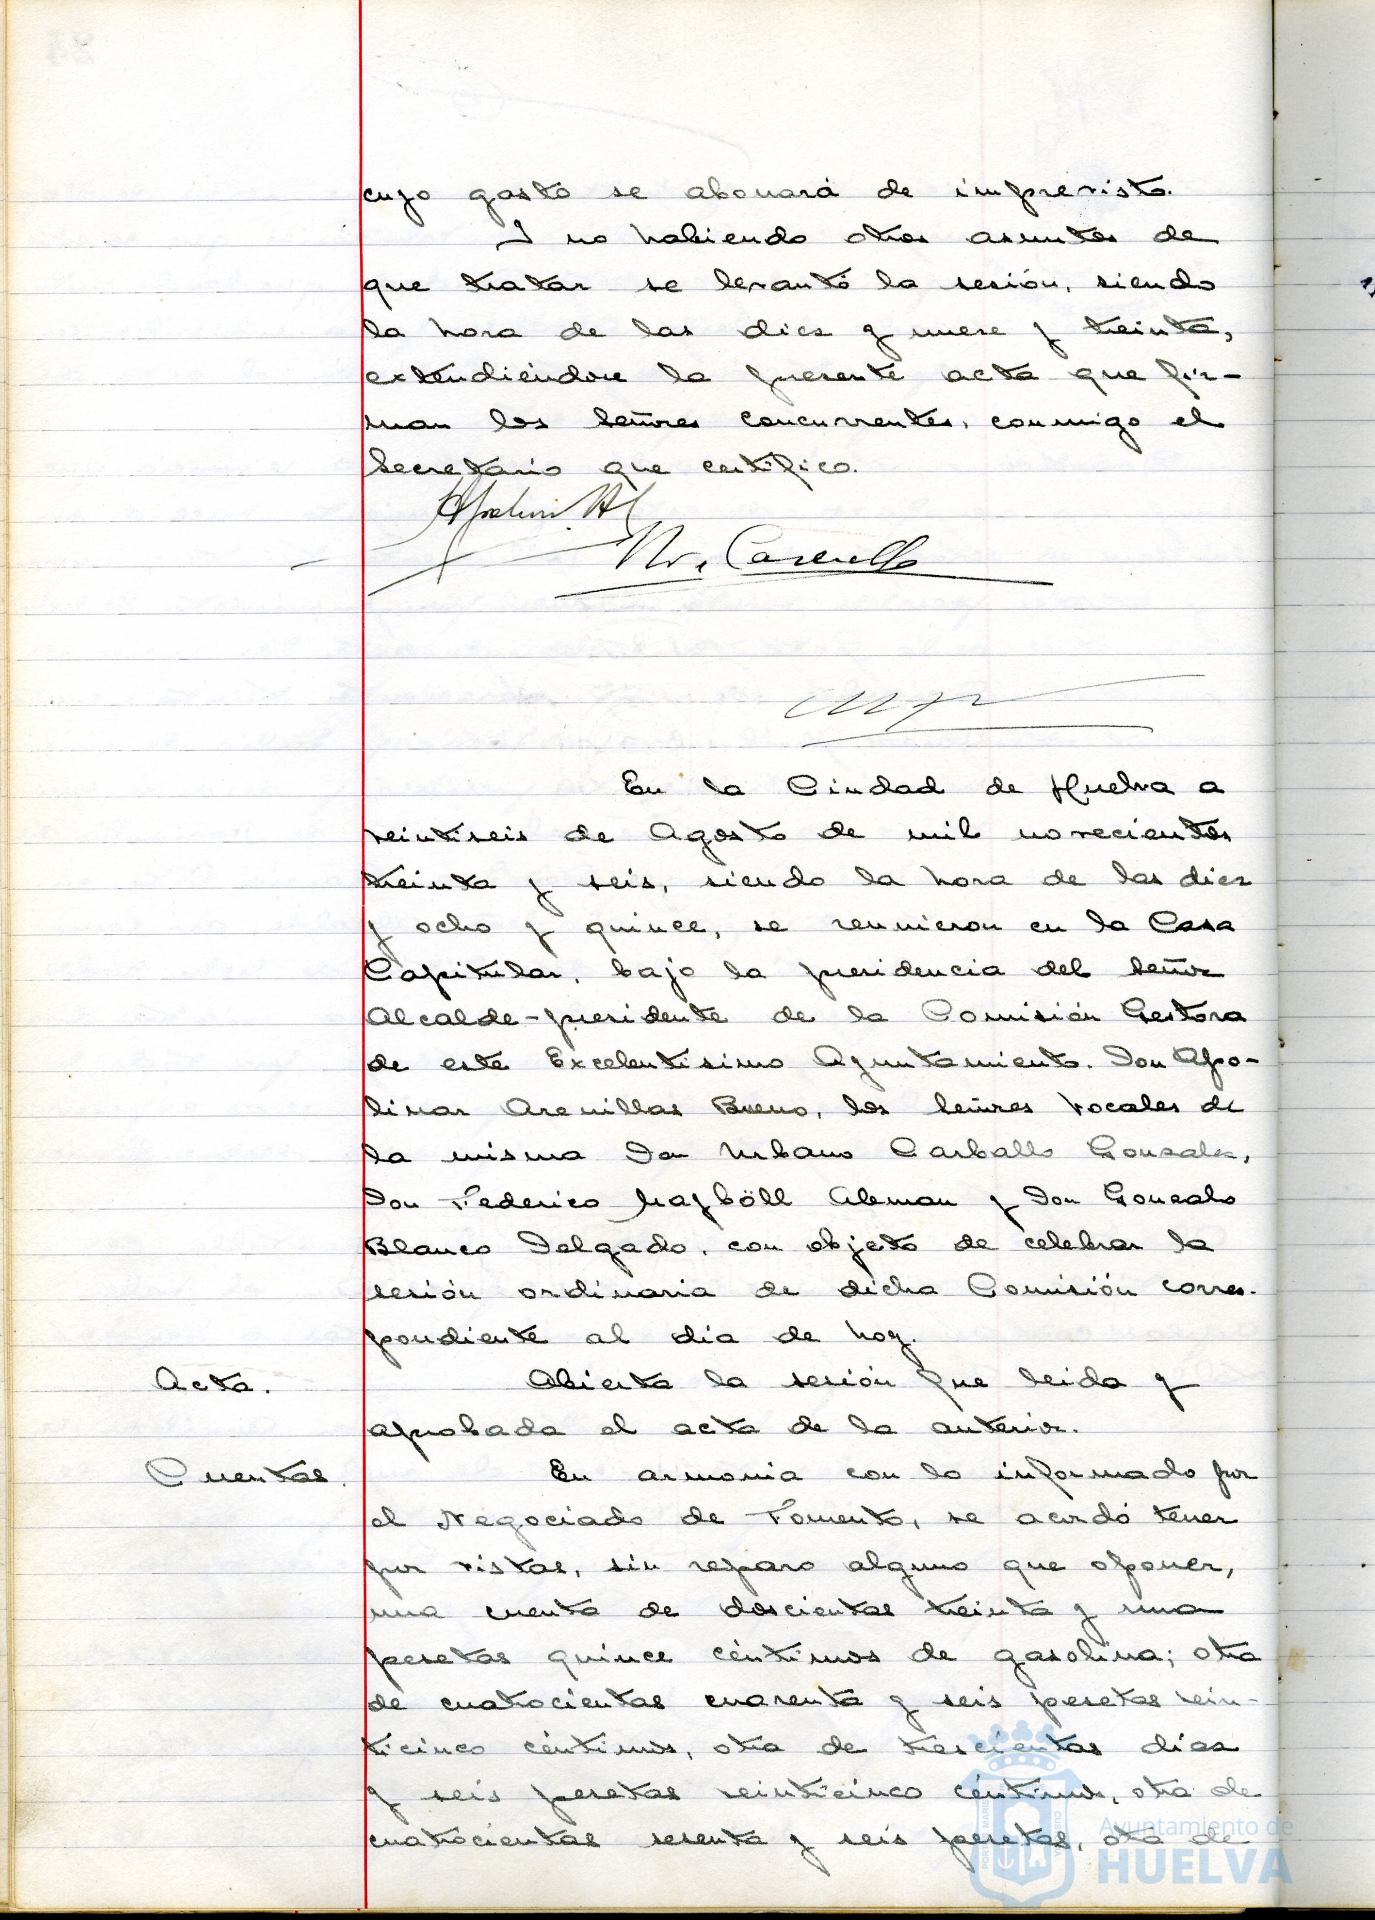 cuyo gasto se abonará de imprevisto.
Y no habiendo otros asuntos de
que tratar se levantó la sesión, siendo
la hora de las diez y nueve y treinta,
extendiéndose la presente acta que fir-
man los Señores concurrentes, conmigo el
Secretario que certifico.
En la Ciudad de Huelva a
veintiseis de Agosto de mil novecientos
treinta y seis, siendo la hora de las diez
y ocho y quince, se reunieron en la Casa
Capitular, bajo la presidencia del Señor
Alcalde-presidente de la Comisión Gestora
de este Excelentisimo Ayuntamiento. Don Apo-
linar Arenillas Bueno, los Señores Vocales de
la misma Don Urbano Carballo Gonzalez,
Don Federico Mayböll Aleman y Don Gonzalo
Blanco Delgado, con objeto de celebrar la
sesión ordinaria de dicha Comisión corres-
pondiente al dia de hoy.
Acta. Abierta la sesión fue leida y
aprobada el acta de la anterior.
Cuentas. En armonia con lo informado por
el Negociado de Fomento, se acordó tener
por vistas, sin reparo alguno que oponer,
una cuenta de doscientas treinta y una
pesetas quince céntimos de gasolina; otra
de cuatrocientas cuarenta y seis pesetas vein-
ticinco céntimos, otra de trescientas diez
y seis pesetas veinticinco céntimos, otra de
cuatrocientas sesenta y seis pesetas, otra de
Ayuntamiento de
HUELVA